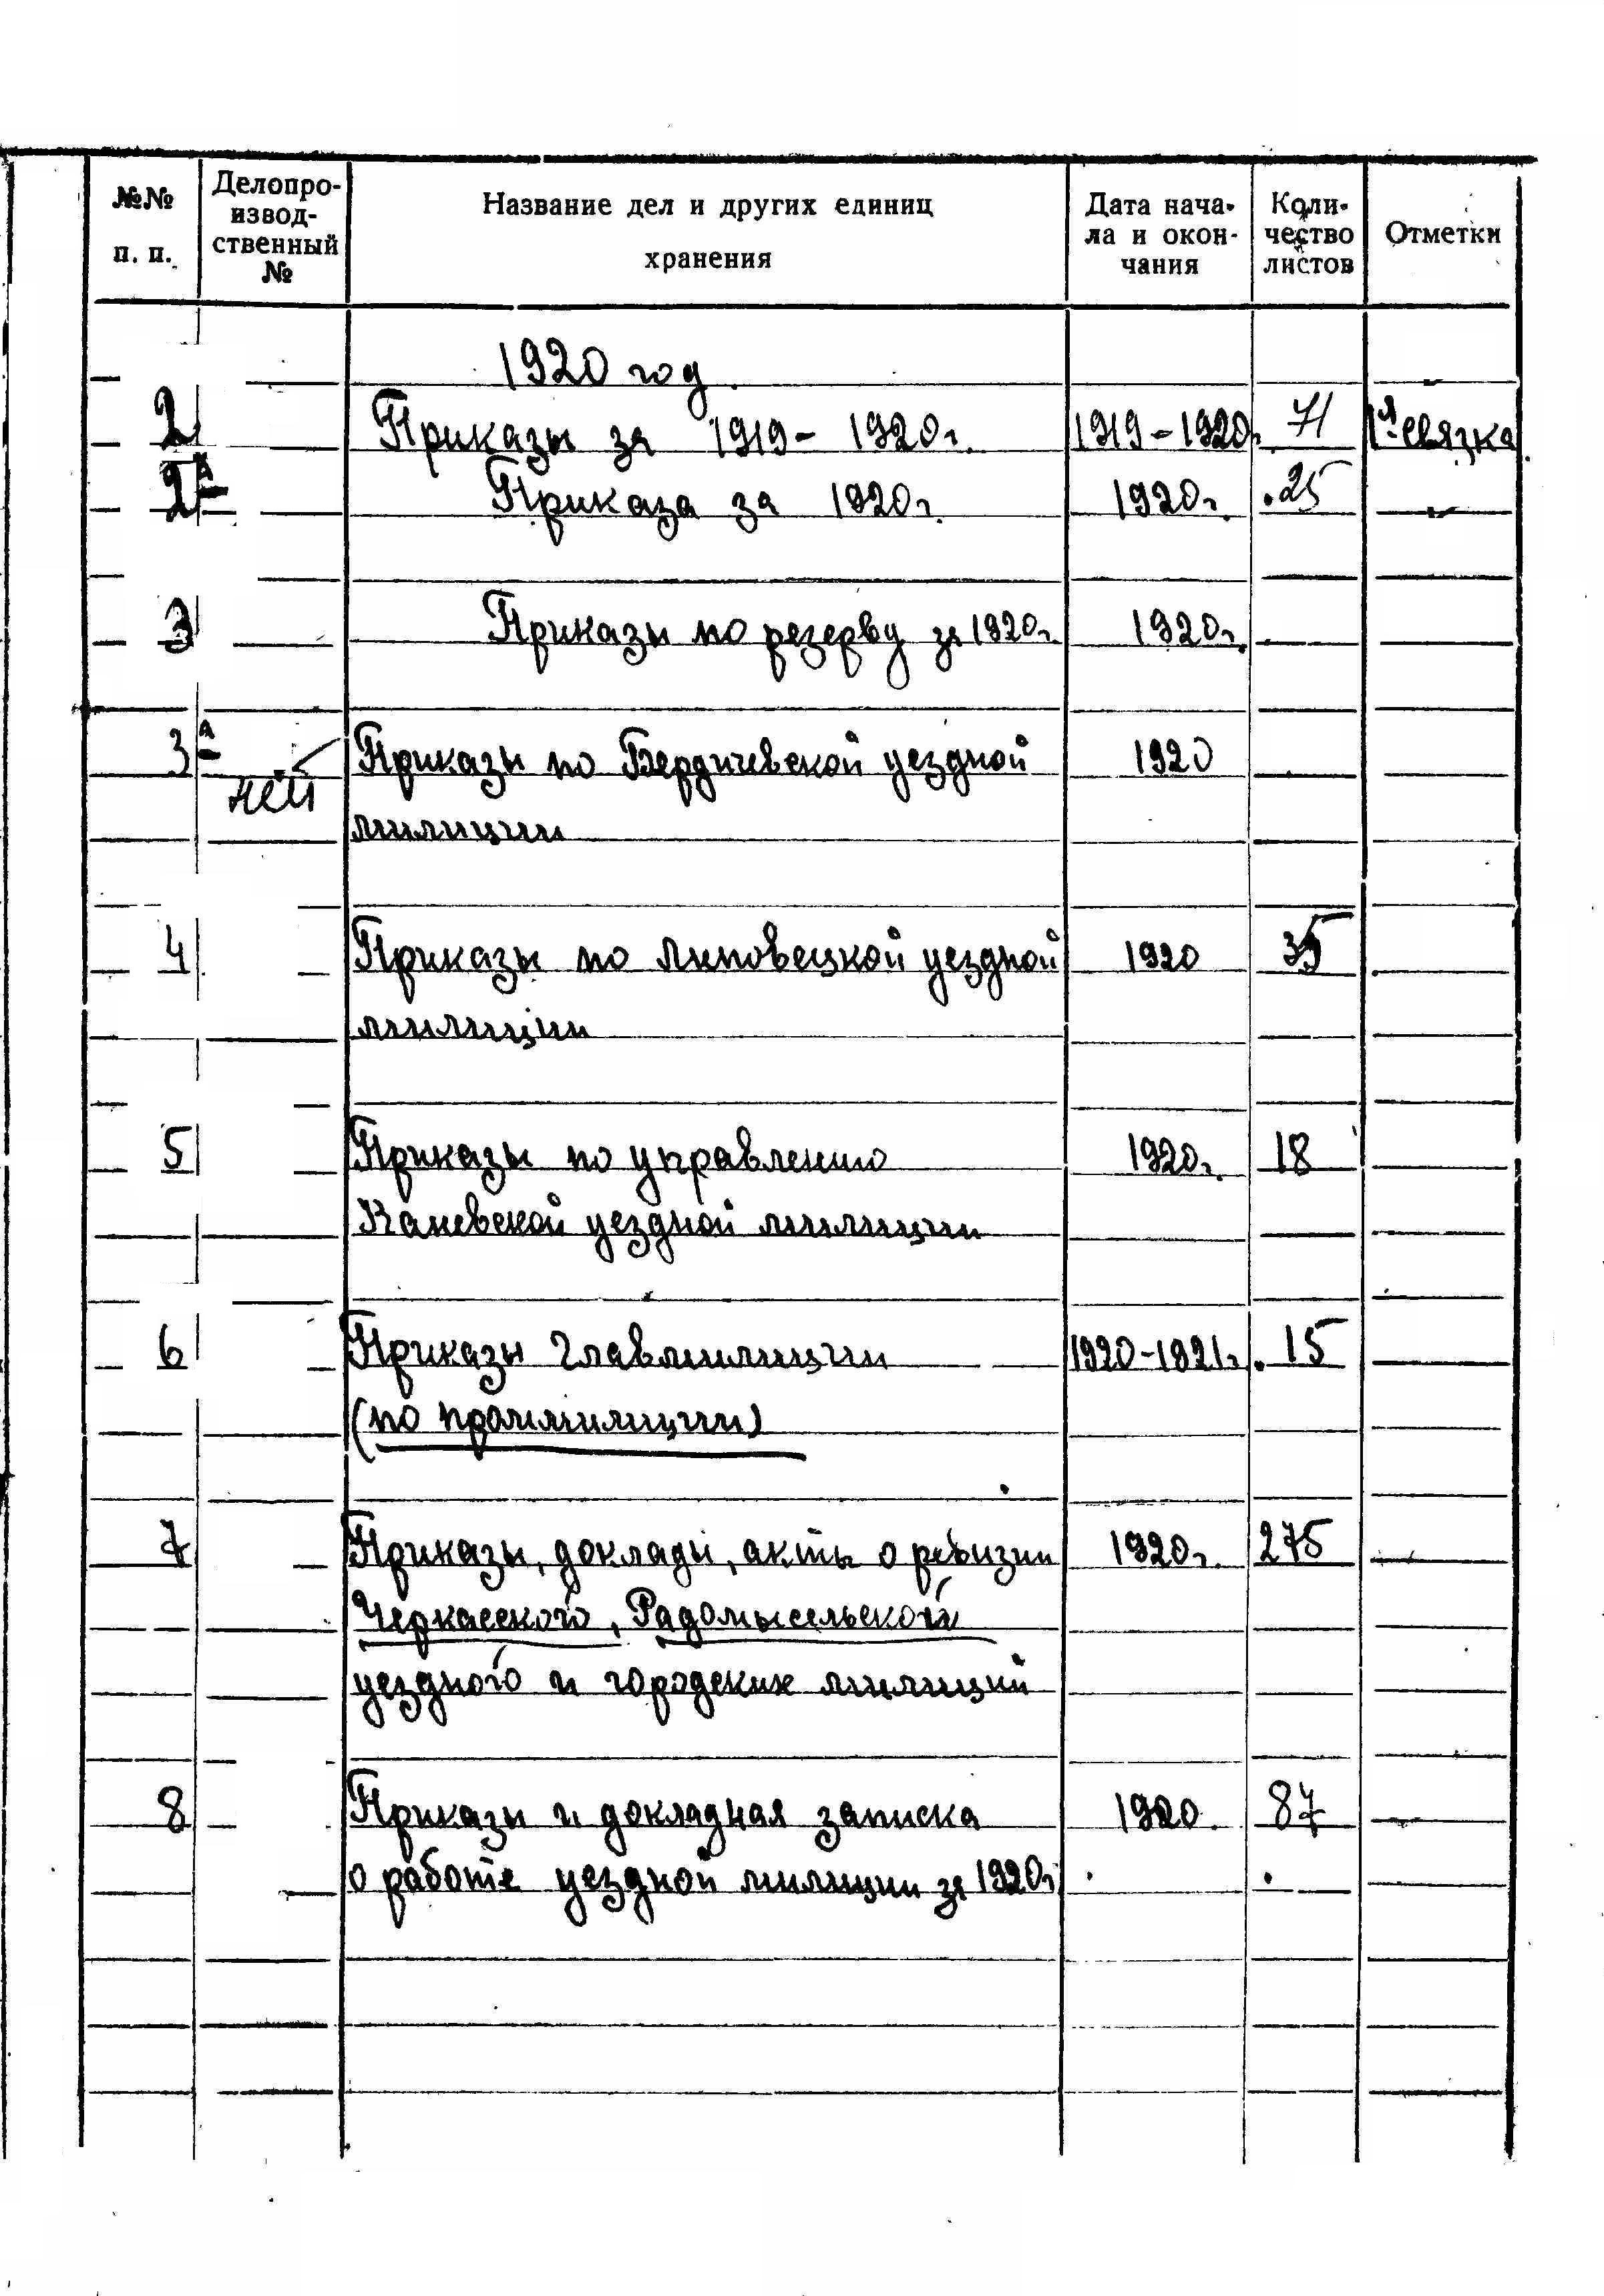 №№ п. п. Делопро-извод-ственный № Название дел и других единиц хранения Дата нача-ла и окон-чания Коли-чество листов Отметки
1920 год
2 Приказы за 1919 - 1920 г. 1919 - 1920 г. 71 1я связка
2а Приказа за 1920 г. 1920 г. 25
3 Приказы по резерву за 1920 г. 1920 г.
3а Приказы по Бердичевской уездной 1920
милиции
4 Приказы по Липовецкой уездной 1920 35
милиции
5 Приказы по управлению 1920 г. 18
Каневской уездной милиции
6 Приказы Главмилиции 1920 - 1921 г. 15
(по проммилиции)
7 Приказы, доклады, акты о ревизии 1920 г. 275
Черкасского, Радомысельской
уездного и городских милиций
8 Приказы и докладная записка 1920 87
о работе уездной милиции за 1920 г.